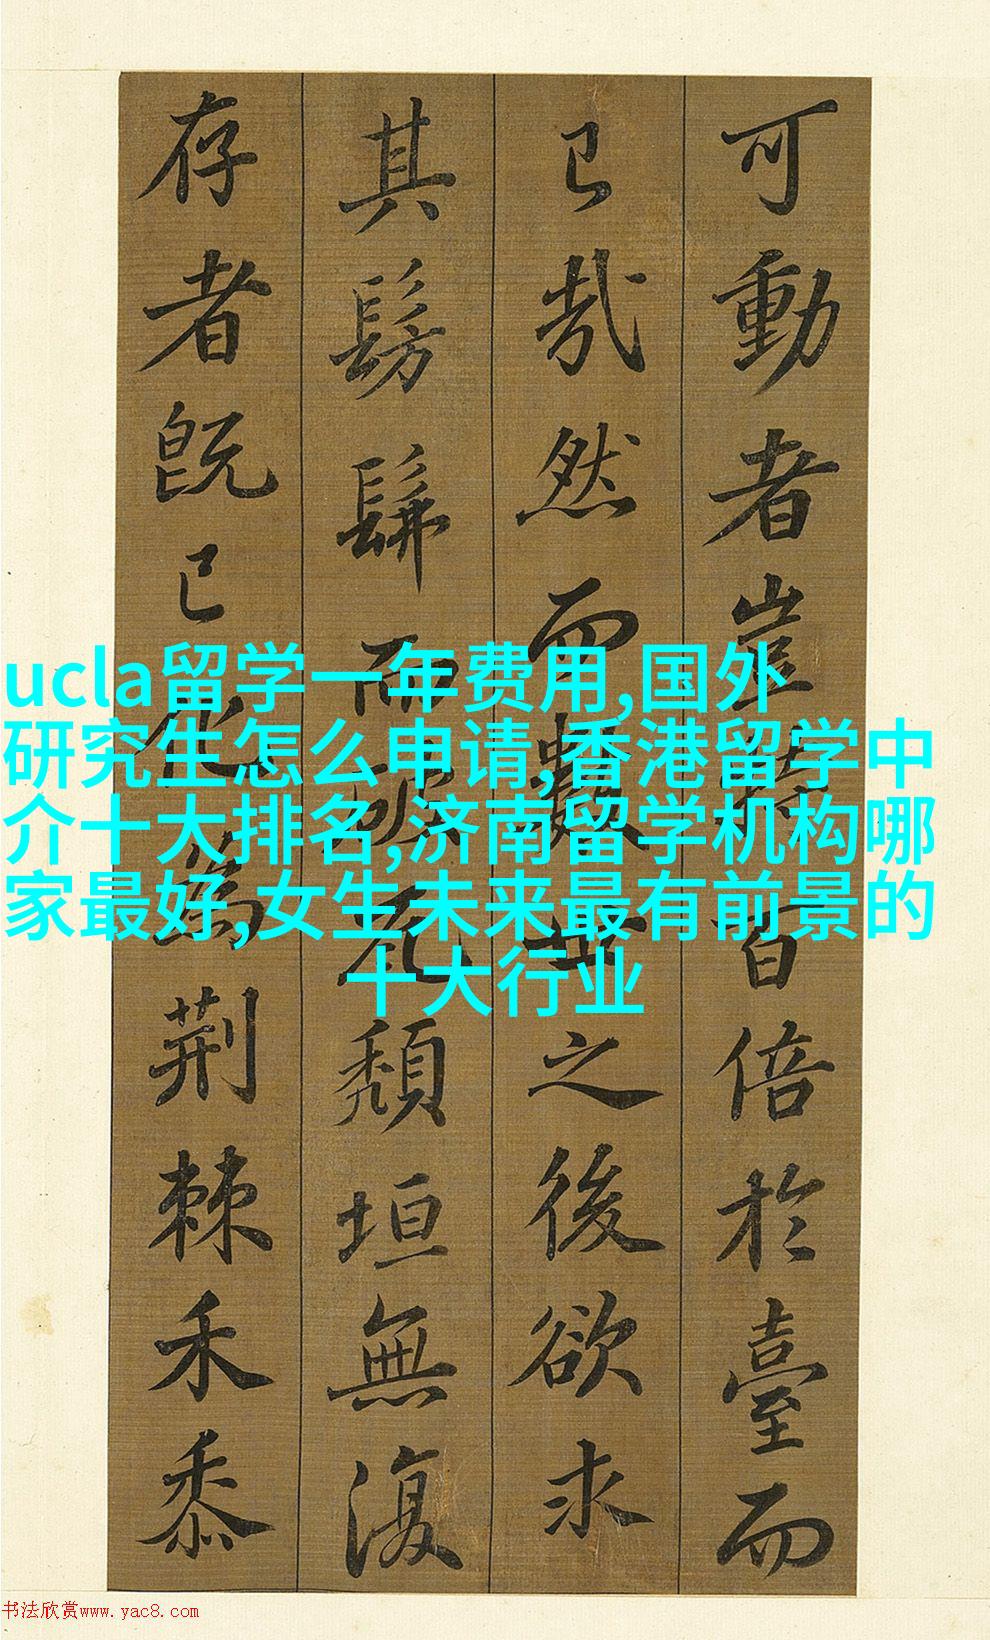 可動者豈特百倍於臺而
已哉然而數世之後欲求
其髣髴而破瓦頹垣無復
存者既已化為荆棘禾黍
ucla留学一年费用,国外
研究生怎么申请,香港留学中
介十大排名,济南留学机构哪
家最好,女生未来最有前景的
十大行业
书法欣赏www.yac8.com